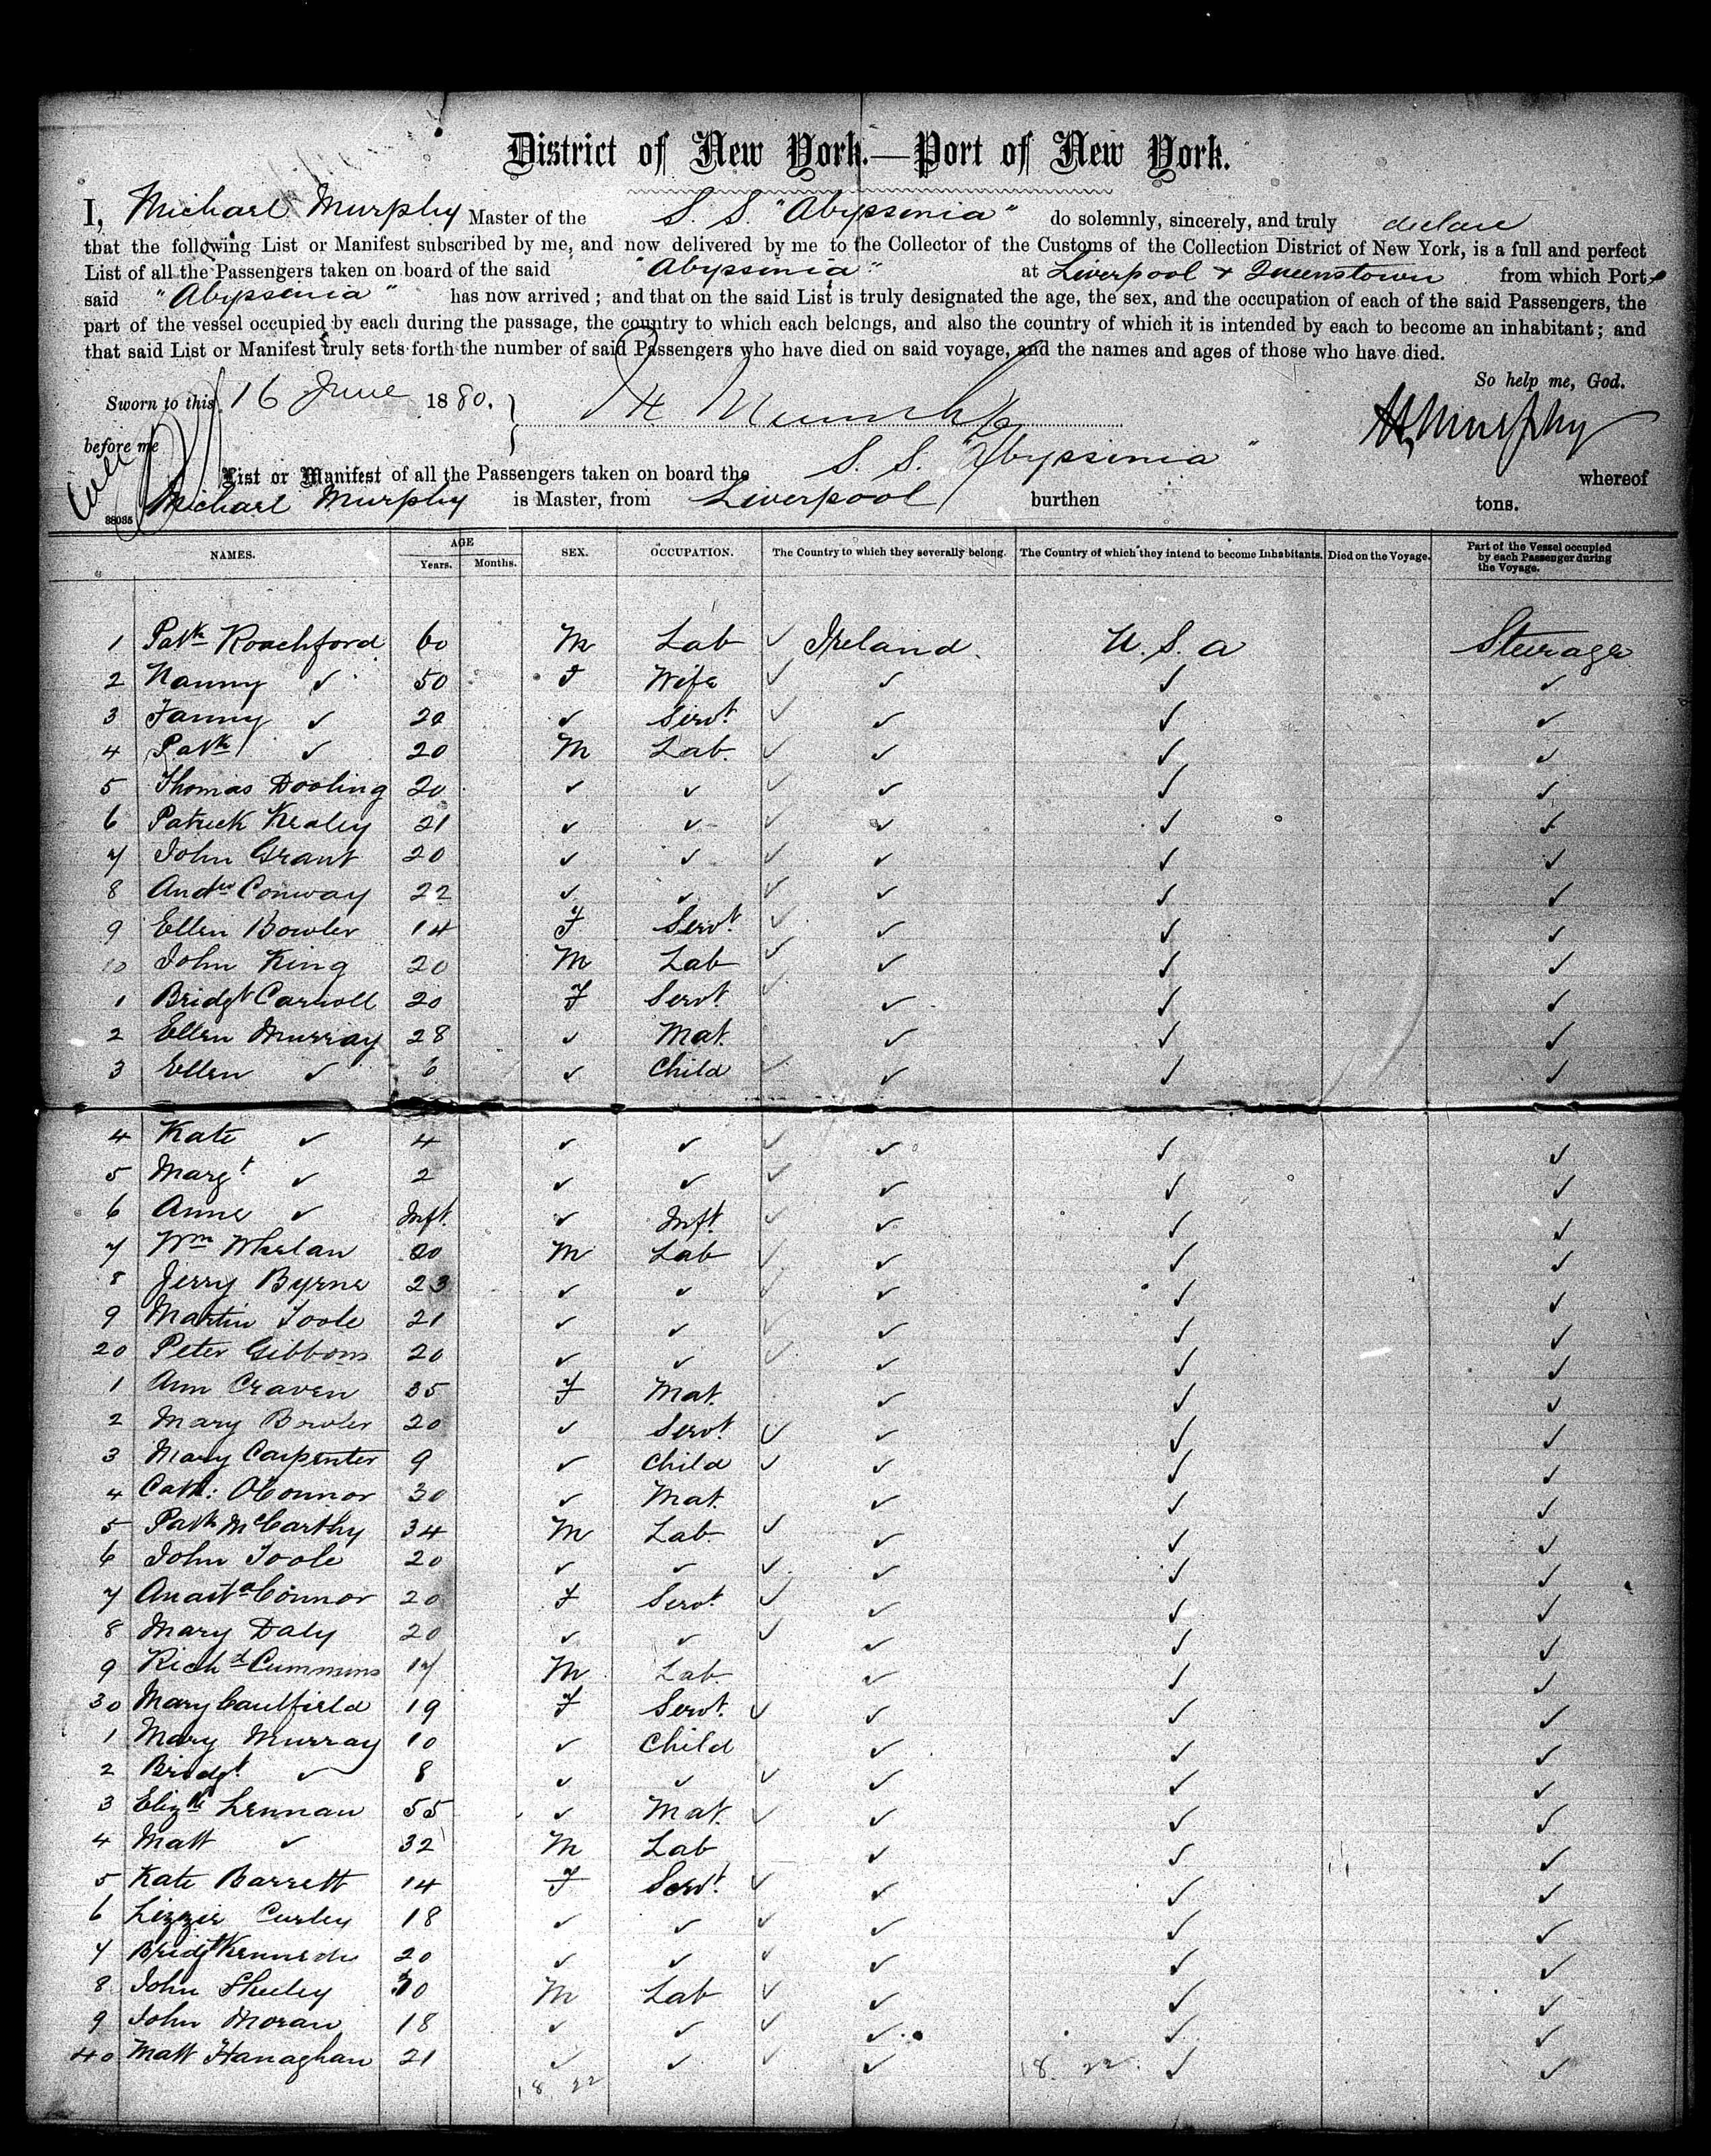 District of New York.—Port of New York.
I, Michael Murphy Master of the S. S. "Abyssinia" do solemnly, sincerely, and truly declare
that the following List or Manifest subscribed by me, and now delivered by me to the Collector of the Customs of the Collection District of New York, is a full and perfect
List of all the Passengers taken on board of the said "Abyssinia" at Liverpool & Queenstown from which Port
said "Abyssinia" has now arrived; and that on the said List is truly designated the age, the sex, and the occupation of each of the said Passengers, the
part of the vessel occupied by each during the passage, the country to which each belongs, and also the country of which it is intended by each to become an inhabitant; and
that said List or Manifest truly sets forth the number of said Passengers who have died on said voyage, and the names and ages of those who have died.
So help me, God.
Sworn to this 16 June 1880. Murphy
before me
List or Manifest of all the Passengers taken on board the S. S. "Abyssinia" whereof
38035 Michael Murphy is Master, from Liverpool burthen tons.
NAMES. AGE Years. Months. SEX. OCCUPATION. The Country to which they severally belong. The Country of which they intend to become Inhabitants. Died on the Voyage. Part of the Vessel occupied by each Passenger during the Voyage.
1 Patk Roachford 60 M Lab ✓ Ireland. U. S. a Steerage
2 Nanny ✓ 50 F Wife ✓ ✓ ✓ ✓
3 Fanny ✓ 20 ✓ Servt. ✓ ✓ ✓ ✓
4 Patk ✓ 20 M Lab. ✓ ✓ ✓ ✓
5 Thomas Dooling 20 ✓ ✓ ✓ ✓ ✓ ✓
6 Patrick Kealey 21 ✓ ✓ ✓ ✓ ✓ ✓
7 John Grant 20 ✓ ✓ ✓ ✓ ✓ ✓
8 Andw Conway 22 ✓ ✓ ✓ ✓ ✓ ✓
9 Ellen Bowler 14 F Servt. ✓ ✓ ✓ ✓
10 John King 20 M Lab ✓ ✓ ✓ ✓
1 Bridgt Carroll 20 F Servt. ✓ ✓ ✓ ✓
2 Ellen Murray 28 ✓ Mat. ✓ ✓ ✓
3 Ellen ✓ 6 ✓ Child ✓ ✓ ✓ ✓
4 Kate ✓ 4 ✓ ✓ ✓ ✓ ✓ ✓
5 Margt. ✓ 2 ✓ ✓ ✓ ✓ ✓ ✓
6 Anne ✓ Inft. ✓ Inft. ✓ ✓ ✓ ✓
7 Wm Whelan 20 M Lab ✓ ✓ ✓ ✓
8 Jerry Byrne 23 ✓ ✓ ✓ ✓ ✓ ✓
9 Martin Toole 21 ✓ ✓ ✓ ✓ ✓ ✓
20 Peter Gibbons 20 ✓ ✓ ✓ ✓ ✓ ✓
1 Ann Craven 35 F Mat. ✓ ✓ ✓
2 Mary Bowler 20 ✓ Servt. ✓ ✓ ✓ ✓
3 Mary Carpenter 9 ✓ Child ✓ ✓ ✓ ✓
4 Cath: O'Connor 30 ✓ Mat. ✓ ✓ ✓
5 Patk McCarthy 34 M Lab ✓ ✓ ✓ ✓
6 John Toole 20 ✓ ✓ ✓ ✓ ✓ ✓
7 Anasta Connor 20 F Servt. ✓ ✓ ✓ ✓
8 Mary Daly 20 ✓ ✓ ✓ ✓ ✓ ✓
9 Richd Cummins 17 M Lab ✓ ✓ ✓
30 Mary Caulfield 19 F Servt. ✓ ✓ ✓ ✓
1 Mary Murray 10 ✓ Child ✓ ✓ ✓
2 Bridgt ✓ 8 ✓ ✓ ✓ ✓ ✓ ✓
3 Elizth Lennan 55 ✓ Mat. ✓ ✓ ✓ ✓
4 Matt ✓ 32 M Lab ✓ ✓ ✓
5 Kate Barrett 14 F Servt. ✓ ✓ ✓ ✓
6 Lizzie Curley 18 ✓ ✓ ✓ ✓ ✓ ✓
7 Bridgt 20 ✓ ✓ ✓ ✓ ✓ ✓
8 John Sheeley M Lab ✓ ✓ ✓ ✓
9 John Moran 18 ✓ ✓ ✓ ✓ ✓ ✓
40 Matt Hanaghan 21 ✓ ✓ ✓ ✓ ✓ ✓
18 22 18 22